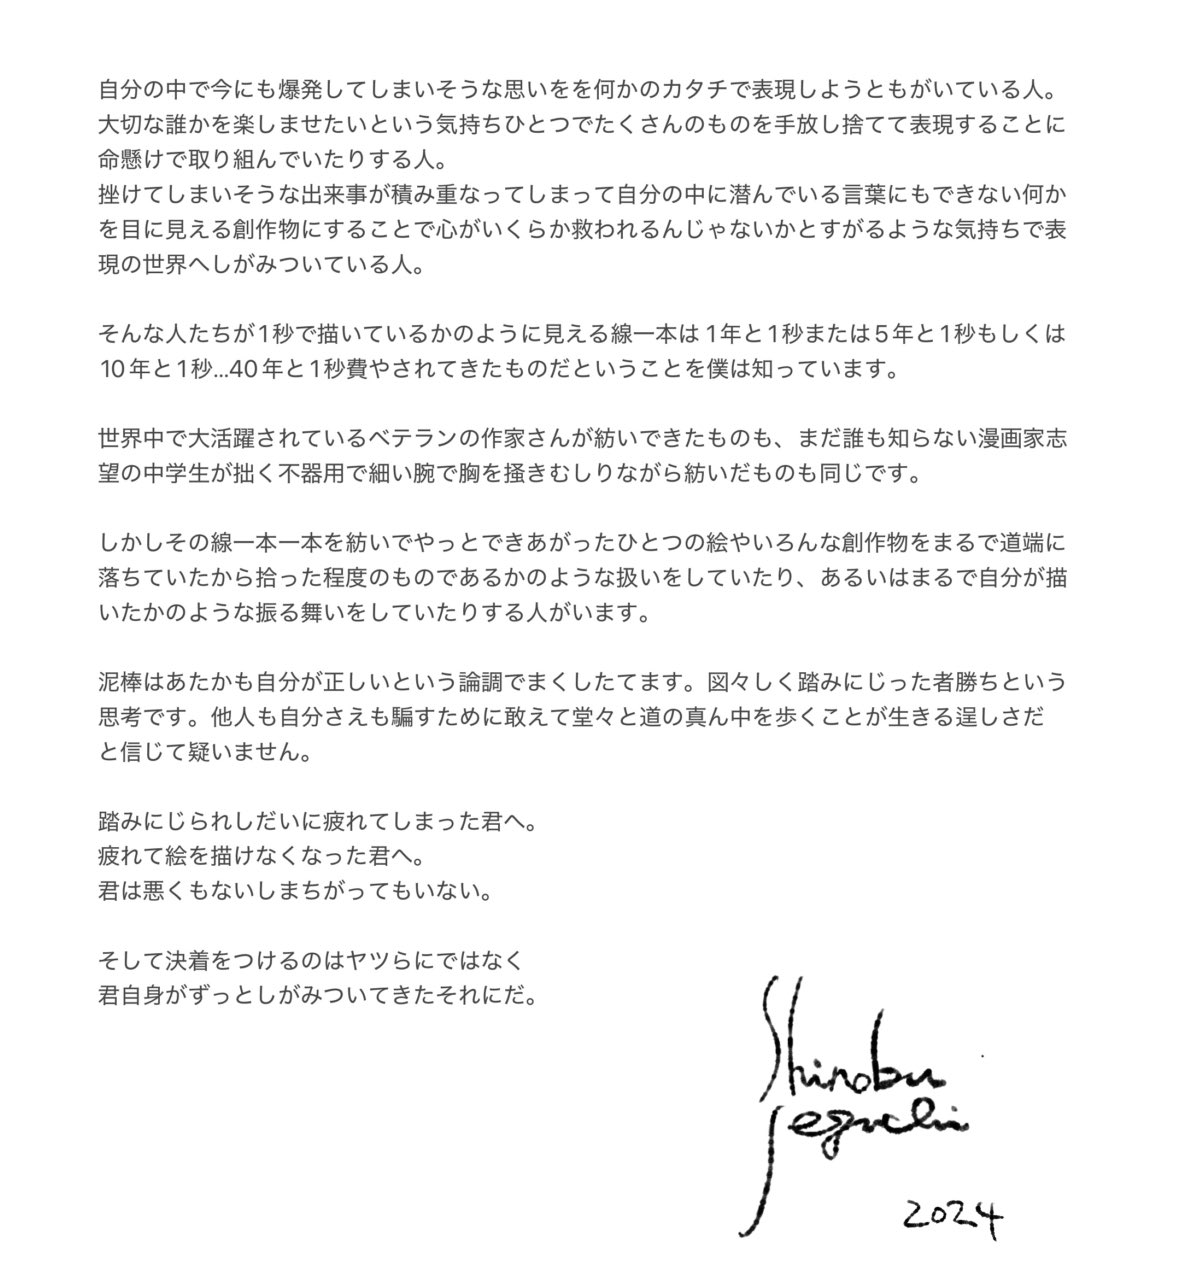 自分の中で今にも爆発してしまいそうな思いをを何かのカタチで表現しようともがいている人。
大切な誰かを楽しませたいという気持ちひとつでたくさんのものを手放し捨てて表現することに
命懸けで取り組んでいたりする人。
挫けてしまいそうな出来事が積み重なってしまって自分の中に潜んでいる言葉にもできない何か
を目に見える創作物にすることで心がいくらか救われるんじゃないかとすがるような気持ちで表
現の世界へしがみついている人。
そんな人たちが1秒で描いているかのように見える線一本は1年と1秒または5年と1秒もしくは
10年と1秒...40年と1秒費やされてきたものだということを僕は知っています。
世界中で大活躍されているベテランの作家さんが紡いできたものも、まだ誰も知らない漫画家志
望の中学生が拙く不器用で細い腕で胸を掻きむしりながら紡いだものも同じです。
しかしその線一本一本を紡いでやっとできあがったひとつの絵やいろんな創作物をまるで道端に
落ちていたから拾った程度のものであるかのような扱いをしていたり、あるいはまるで自分が描
いたかのような振る舞いをしていたりする人がいます。
泥棒はあたかも自分が正しいという論調でまくしたてます。図々しく踏みにじった者勝ちという
思考です。他人も自分さえも騙すために敢えて堂々と道の真ん中を歩くことが生きる逞しさだ
と信じて疑いません。
踏みにじられしだいに疲れてしまった君へ。
疲れて絵を描けなくなった君へ。
君は悪くもないしまちがってもいない。
そして決着をつけるのはヤツらにではなく
君自身がずっとしがみついてきたそれにだ。
Shinobu
Jeguchi
2024